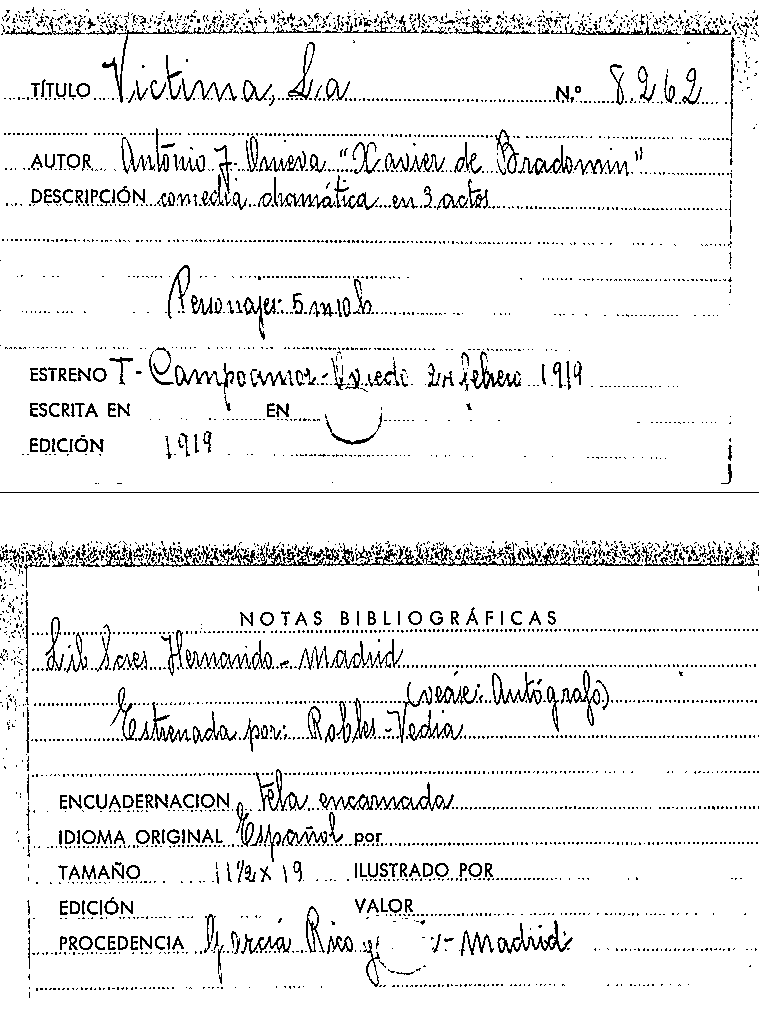 TÍTULO Victima, La N.º 8.262
AUTOR Antonio J. Onieva "Xavier de Bradomin"
DESCRIPCIÓN comedia dramática en 3 actos
Personajes: 5 m 10 h
ESTRENO T- Campoamor- Oviedo febrero 1919
ESCRITA EN EN
EDICIÓN 1919
NOTAS BIBLIOGRÁFICAS
Lib Scres Hernando - Madrid
(veáse: Autógrafo)
Estrenada por: Robles-Vedia
ENCUADERNACION Tela encarnada
IDIOMA ORIGINAL Español por
TAMAÑO 11½ x 19 ILUSTRADO POR
EDICIÓN VALOR
PROCEDENCIA García Rico y - Madrid